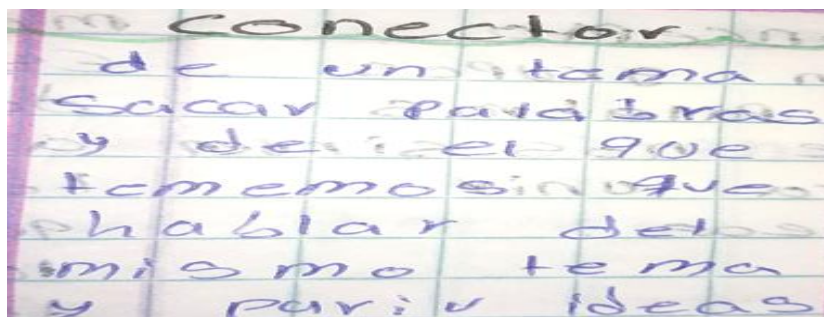 Conector
de un tema
Sacar palabras
y de el que
tememos que
hablar del
mismo tema
y parir ideas